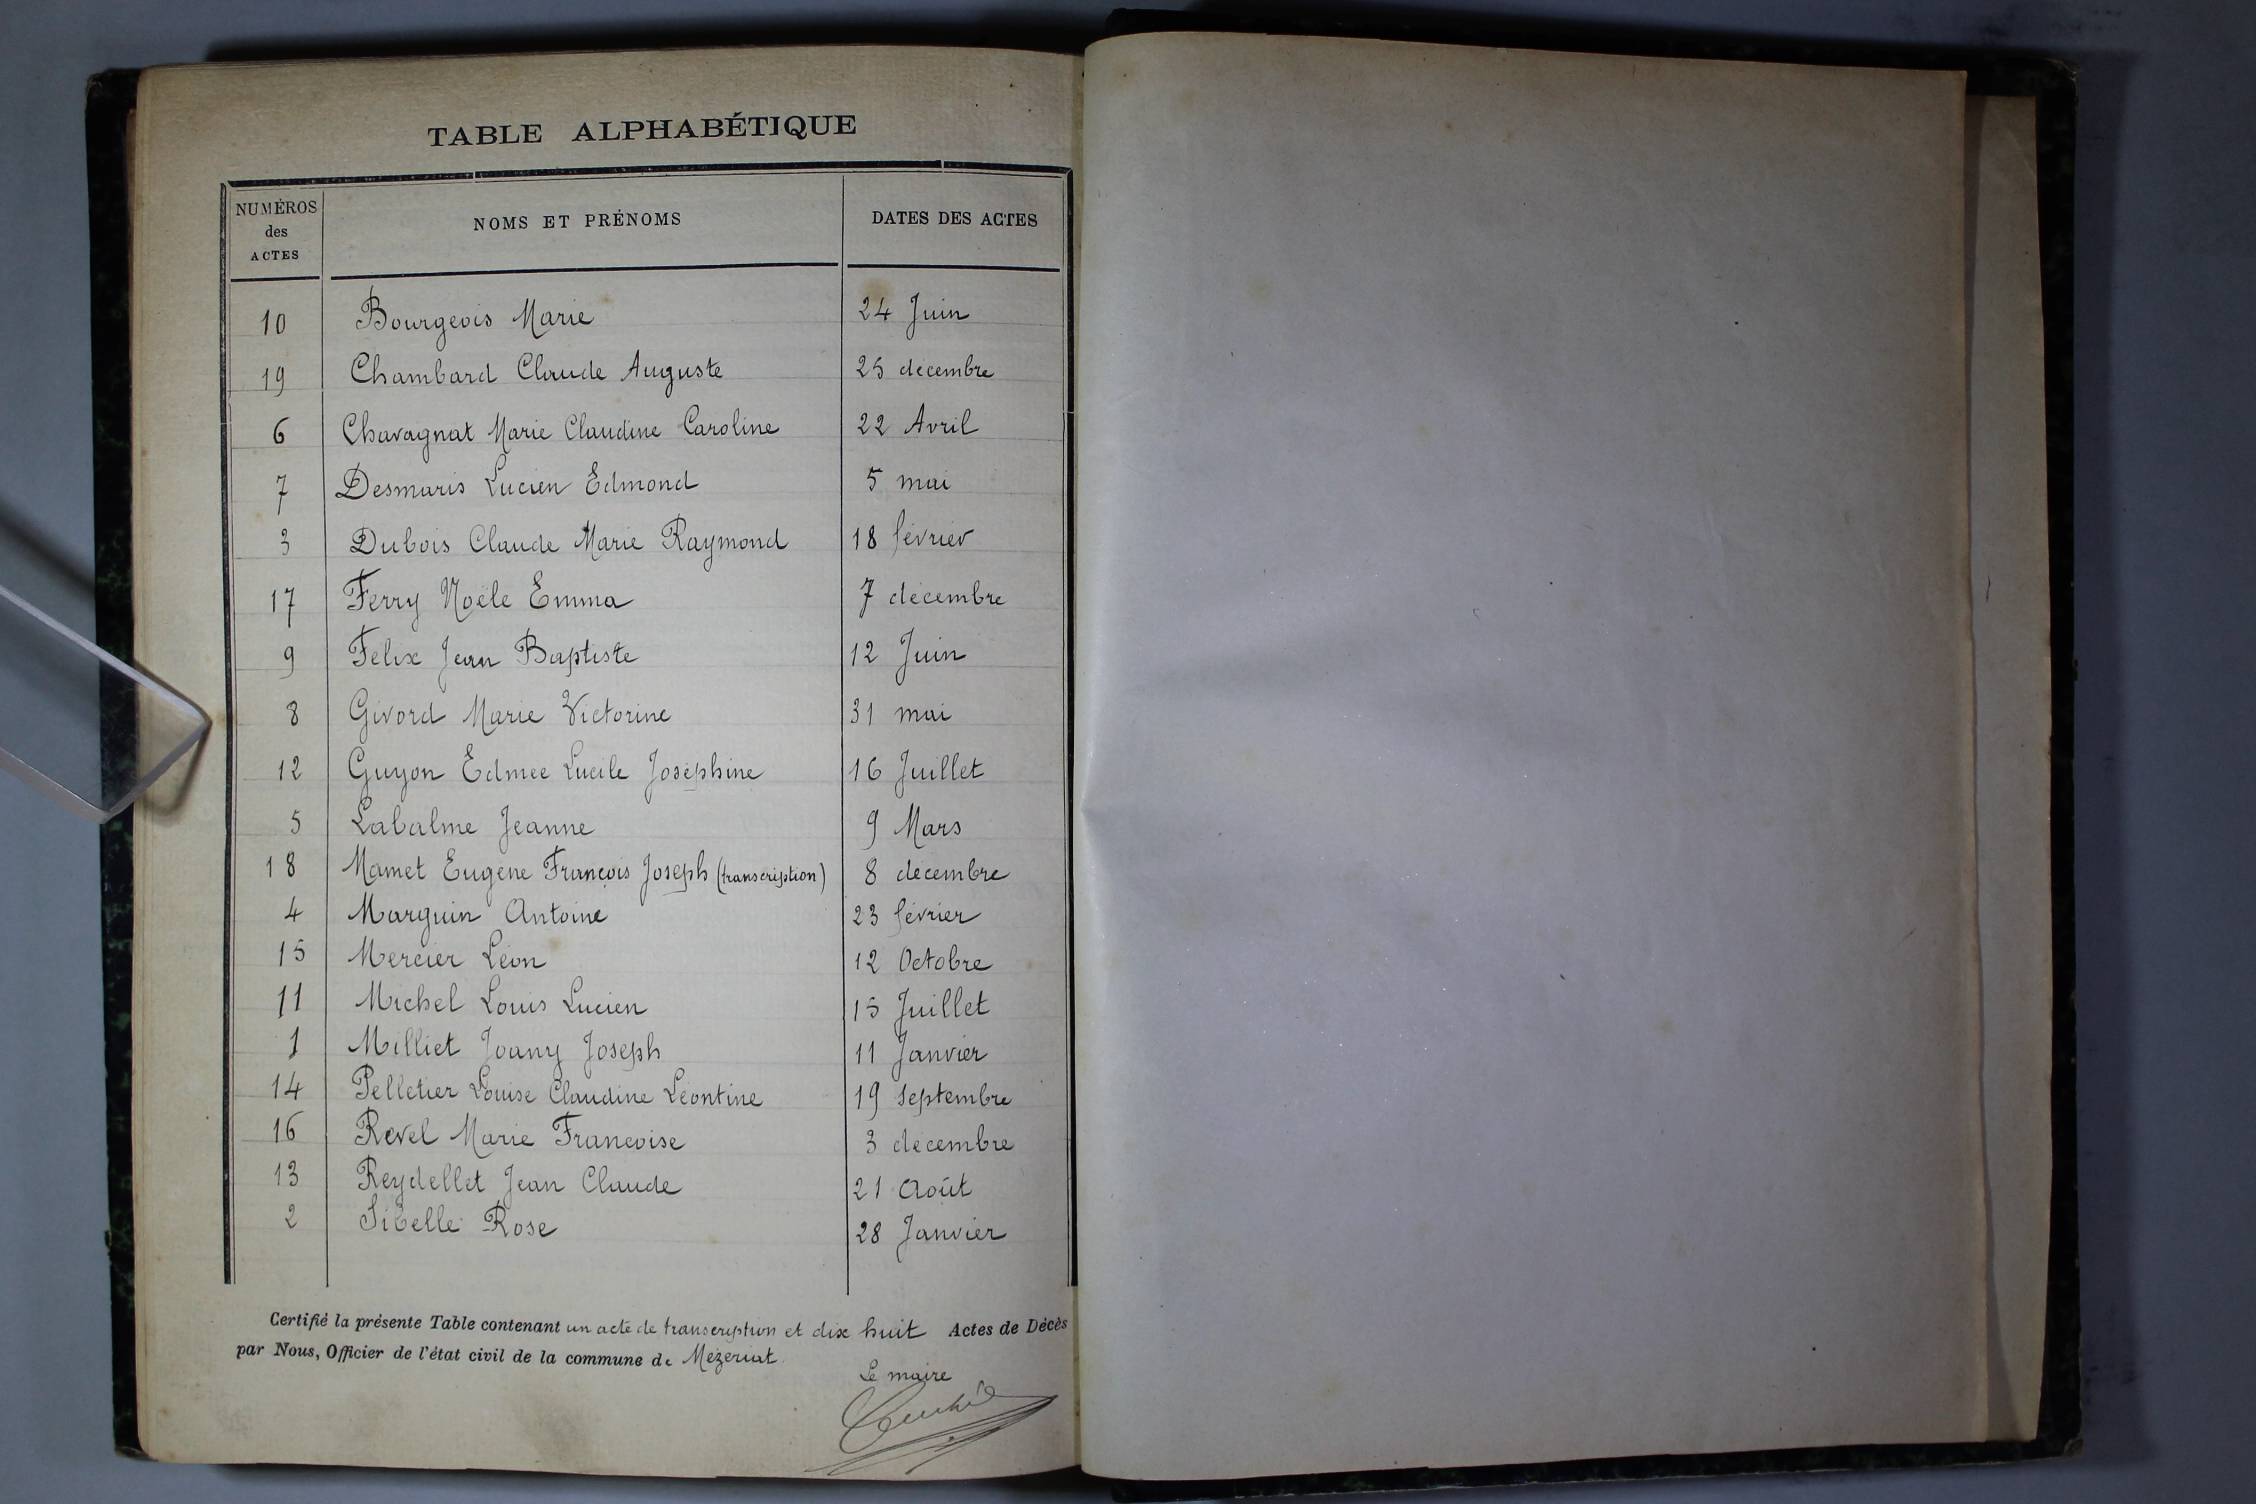 TABLE ALPHABÉTIQUE
NUMÉROS des ACTES NOMS ET PRÉNOMS DATES DES ACTES
10 Bourgeois Marie 24 Juin
19 Chambard Claude Auguste 25 décembre
6 Chavagnat Marie Claudine Caroline 22 Avril
7 Desmaris Lucien Edmond 5 mai
3 Dubois Claude Marie Raymond 18 février
17 Ferry Noële Emma 7 décembre
9 Félix Jean Baptiste 12 Juin
8 Givord Marie Victorine 31 mai
12 Guyon Edmée Lucile Joséphine 16 Juillet
5 Labalme Jeanne 9 Mars
18 Mamet Eugène François Joseph (transcription) 8 décembre
4 Marguin Antoine 23 février
15 Mercier Léon 12 Octobre
11 Michel Louis Lucien 15 Juillet
1 Milliet Joany Joseph 11 Janvier
14 Pelletier Louise Claudine Léontine 19 septembre
16 Revel Marie Francoise 3 décembre
13 Reydellet Jean Claude 21 Août
2 Sibelle Rose 28 Janvier
Certifié la présente Table contenant un acte de transcription et dix huit Actes de Décès
par Nous, Officier de l'état civil de la commune de Mézériat.
Le maire